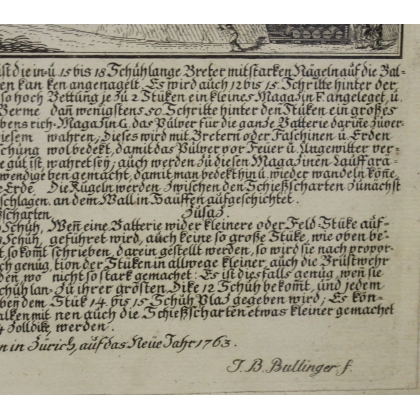 ist die in u. 15 bis 18 Schühlange Breter mit starken Nägeln auf die Bal-
en kan ken angenagelt. Es wird auch 12 bis 15 Schritte hinter der
so hoch Bettung je zu 2 Stüken ein kleines Magazin F. angeleget, u.
Berme dan wenigstens 50 Schritte hinter den Stüken ein großes
bens rich- Magazin G. das Pülver für die ganze Batterie darine zwer-
ielem wahren, Dieses wird mit Bretern oder Faschinen u. Erden
chüng wol bedekt, damit das Pülver vor Feuer u. Ungewitter ver-
e güt ist wahret seÿ; auch werden zu diesen Magazinen Lauffgrä-
wendig ben gemacht, damit man bedekt hin u. wieder wandeln köñe
e Erde. Die Kügeln werden zwischen den Schießscharten zunächst
schlagen. an dem Wall in Hauffen aufgeschichtet.
ßscharten. Zusaz.
Schüh, Weñ eine Batterie wider kleinere oder Feld Stüke auf-
Schüh, geführet wird, auch keine so große Stüke, wie oben be-
st so komt schrieben, darein gestellt werden, so wird sie nach propor-
ch genüg, tion der Stüken in allwege kleiner, auch die Brüstwehr
den, wo nicht so stark gemachet: Es ist diesfalls genüg, weñ sie
schüh lan- zu ihrer grösten Dike 12 Schüh bekomt, und jedem
ben dem Stük 14. bis 15 Schüh Plaz gegeben wird; Es kön-
alken mit nen auch die Schießscharten etwas kleiner gemachet
4 Zoll dike werden.
n in Zürich, auf das Neüe Jahr 1763.
J. B. Bullinger f.